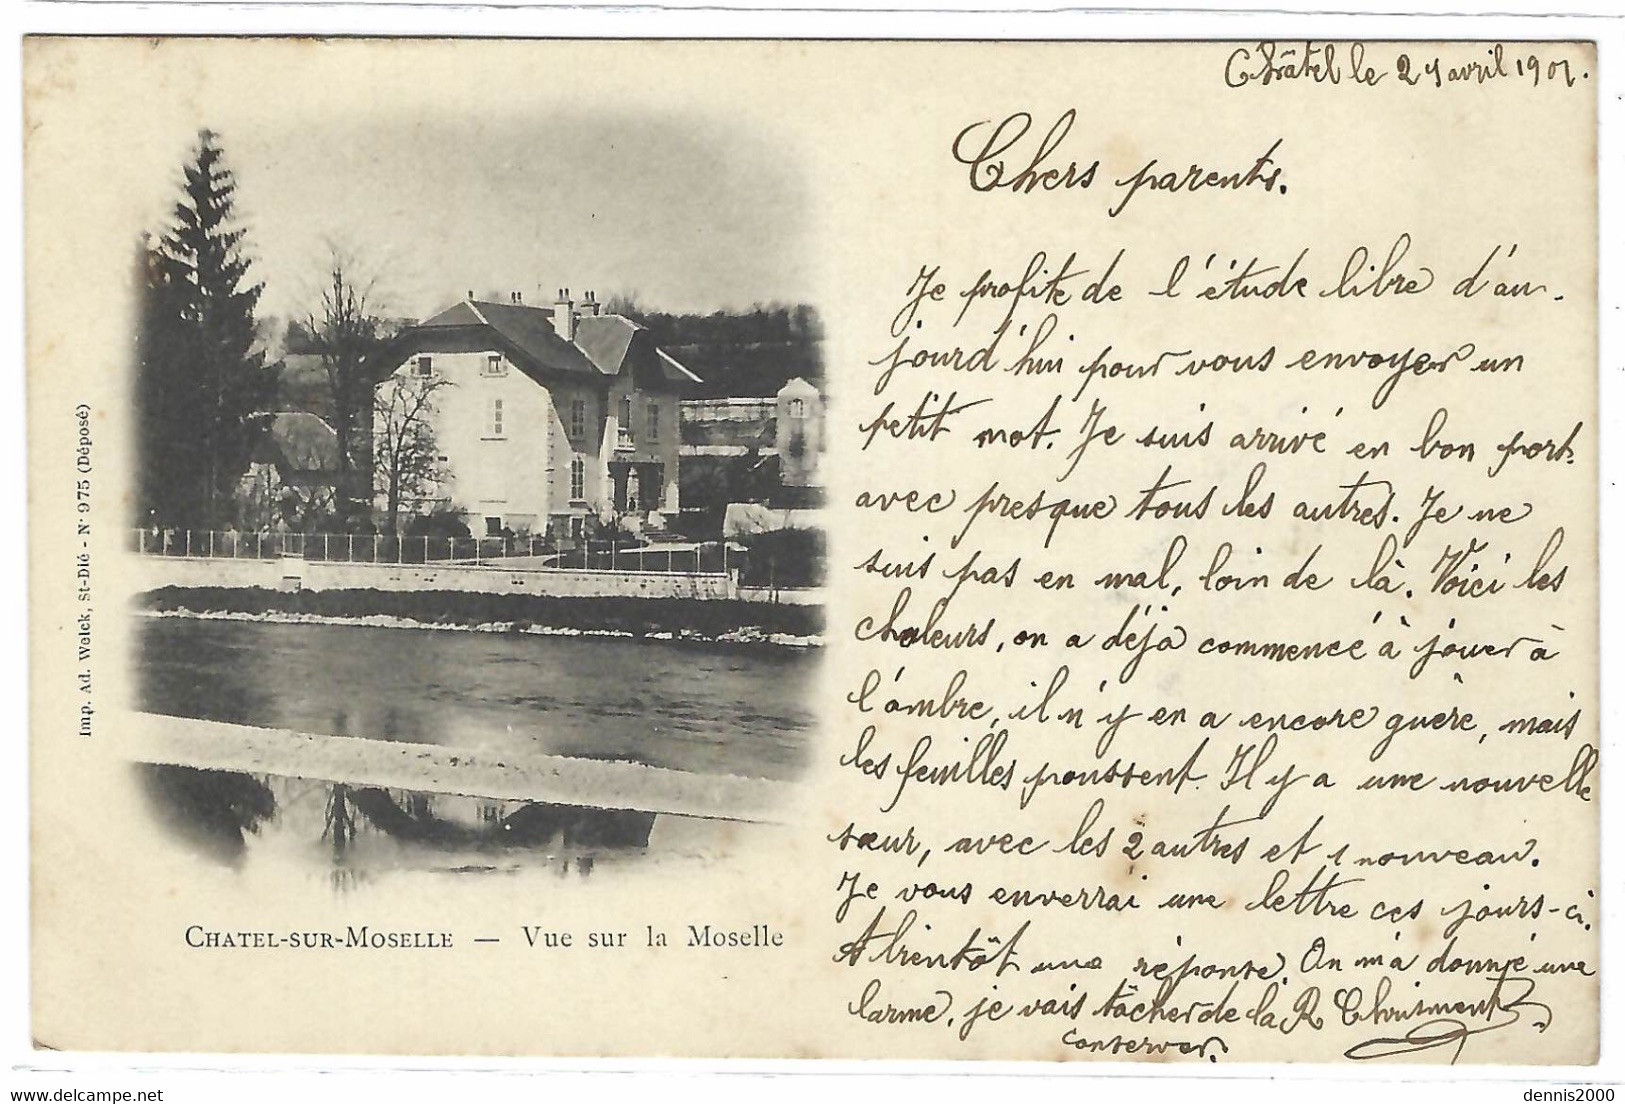 Châtel le 24 avril 1901.
Chers parents.
Je profite de l'étude libre d'au-
jourd'hui pour vous envoyer un
petit mot. Je suis arrivé en bon port
avec presque tous les autres. Je ne
suis pas en mal, loin de là. Voici les
chaleurs, on a déjà commencé à jouer à
l'ombre, il n'y en a encore guère, mais
les feuilles poussent. Il y a une nouvelle
sœur, avec les 2 autres et 1 nouveau.
Je vous enverrai une lettre ces jours-ci.
A bientôt une réponse. On m'a donné une
larme, je vais tâcher de la R
conserver.
CHATEL-SUR-MOSELLE — Vue sur la Moselle
Imp. Ad. Weick, St-Dié - N° 975 (Déposé)
www.delcampe.net
dennis2000